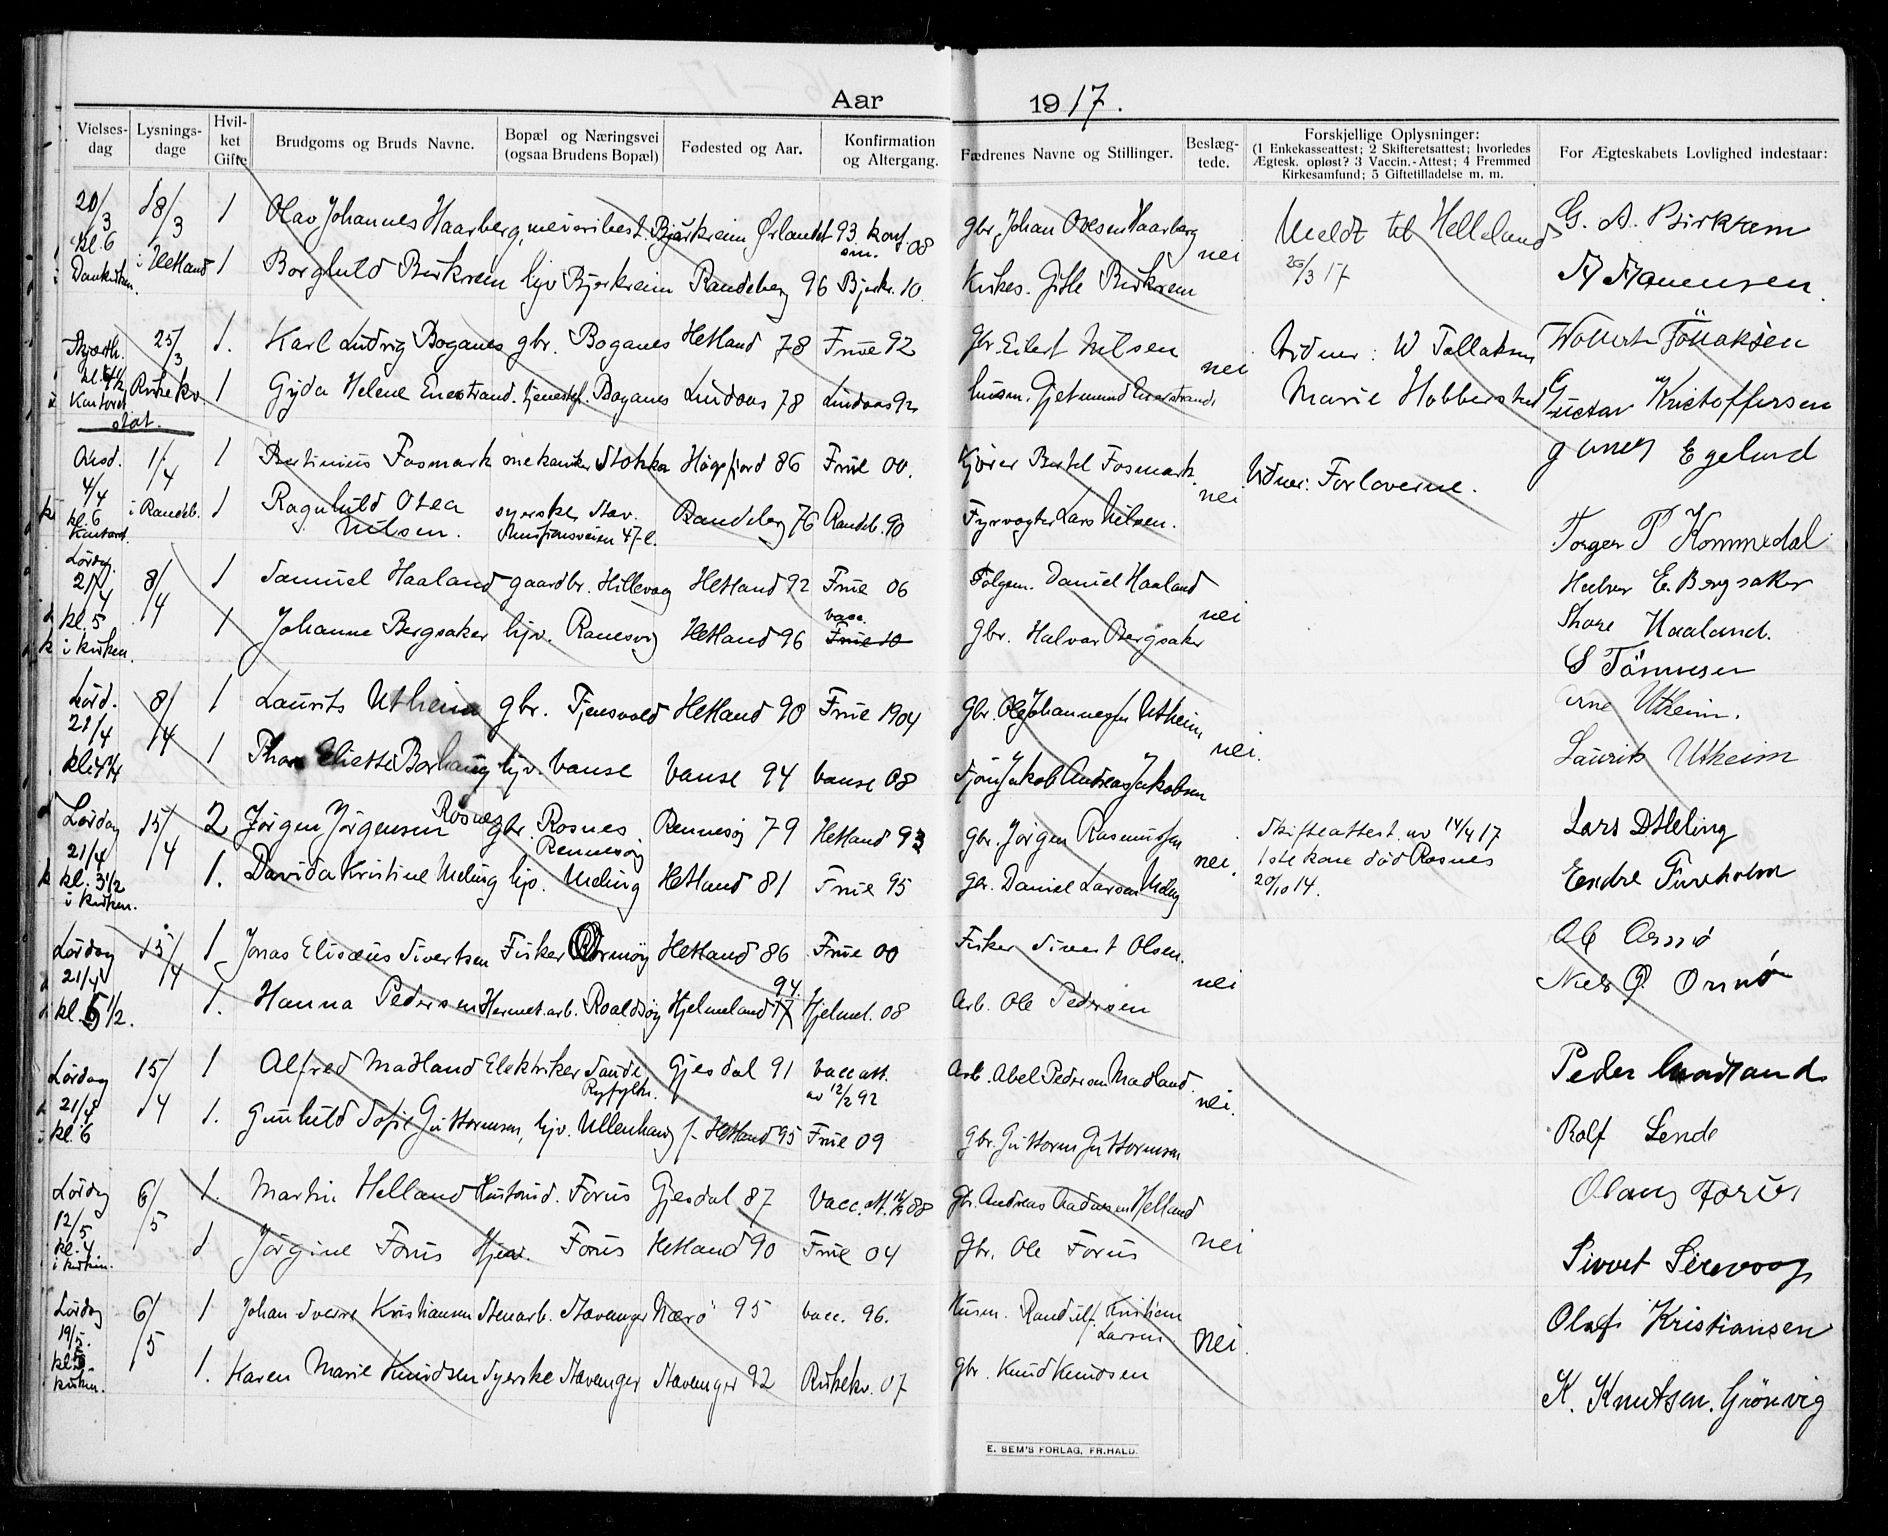 Aar 1917.
Vielses-dag Lysnings-dage Hvil-ket Gifte Brudgoms og Bruds Navne. Bopæl og Næringsvei (ogsaa Brudens Bopæl) Fødested og Aar. Konfirmation og Altergang. Fædrenes Navne og Stillinger. Beslæg-tede. Forskjellige Oplysninger: (1 Enkekasseattest; 2 Skifteretsattest; hvorledes Ægtesk. opløst? 3 Vaccin.-Attest; 4 Fremmed Kirkesamfund; 5 Giftetilladelse m. m. For Ægteskabets Lovlighed indestaar:
20/3 kl. 6 18/3 1 Olav Johannes Haarberg, meieribest. Bjerkreim Ørlandet 93 konf. 08 gbr. Johan Olsen Haarberg nei Meldt til Helleland 26/3 17 G. A. Birkrem
i Hetland 1 Borghild Birkrem hjv Bjerkreim Randeberg 96 Bjerkr. 10. Kirkes. Gitle Birkrem
25/3 1. Karl Ludvig Boganes gbr. Boganes Hetland 78 Frue 92 Gbr. Eilert Nilsen nei Vidner: W Tallaksen
kl. Kontoret 1 Gyda Helene Boganes Lindaas 78 Lindaas 92 Marie Hobberstad Gustav Kristoffersen
Onsd. 4/4 1/4 1 Bertinius Fosmark mekaniker Stokka Høgsfjord 86 Frue 00. Kjører Bertel Fosmark. nei Vidner: Forloverne. Egelund
kl. 6 Kontoret i Randeb. 1 Ragnhild Otea Nilsen. syerske, Stav. Randeberg 76 Randeb. 90 Fyrvogter Lars Nilsen. Torger P Kommedal
Lørdag. 21/4 8/4 1 Samuel Haaland gaardbr. Hillevaag Hetland 92 Frue 06 Daniel Haaland nei Halvor E. Bergsaker
kl. 5 i kirken. 1 Johanne Bergsaker hjv. Hetland 96 vacc. Frue 10 gbr. Halvar Bergsaker Thore Haaland.
S Tønnesen
Lørd. 21/4 8/4 1 Laurits Utheim gbr. Tjensvold Hetland 90 Frue 1904 gbr. Ole Johannesen Utheim nei. Arne Utheim.
1 hjv. Vanse Vanse 94 Vanse 08 Jakob Andreas Jakobsen Laurits Utheim
Lørdag 21/4 15/4 2 Jørgen Jørgensen Rosnes gbr. Rosnes Rennesøy Rennesøy 79 Hetland 93 gbr. Jørgen Rasmussen nei. Skifteattest av 14/4 17 1ste kone død Rosnes 20/10 14. Lars D Meling
kl. 3 1/2 i kirken. 1. Davida Kristine Meling hjv. Meling Hetland 81 Frue 95 gbr. Daniel Larsen Meling Endre
Lørdag 21/4 15/4 1 Jonas Elisæus Sivertsen Fisker Ormøy Hetland 86 Frue 00 Fisker Sivert Olsen. nei Ormø
kl. 5 1/2. 1. Hanna Pedersen Hermet. arb. Roaldsøy Hjelmeland 94 Hjelmel. 08 Arb. Ole Pedersen Ormø
Lørdag 21/4 15/4 1 Alfred Madland Elektriker Sande, Ryfylke. Gjesdal 91 Vacc att. av 12/2 92 Arb. Abel Pedersen Madland. nei. Peder Madland
kl. 6 1. Gunhild Sofie Guttormsen, hjv. Ullenhaug Hetland 95 Frue 09 Gbr. Guttorm Guttormsen Rolf Lende
Lørdag 12/5 6/5 1. Martin Helland Forus Gjesdal 87 Vacc. att. 88 Gbr. Andreas Helland nei Olaus Forus
kl. 4. i kirken. 1 Jørgine Forus Hjv. Forus Hetland 90 Frue 04 Gbr. Ole Forus Sivert
Lørdag 19/5. 6/5 1 Johan Sverre Kristiansen Stenarb. Stavanger Nærø 95 vacc. 96. Husm. Randulf Kristian Larsen nei. Olaf Kristiansen
kl. 5. kirken. 1. Karen Marie Knudsen Syerske Stavanger Stavanger 92 07 gbr. Knud Knudsen K. Knutsen. Grønvig
E. SEM'S FORLAG, FR.HALD.